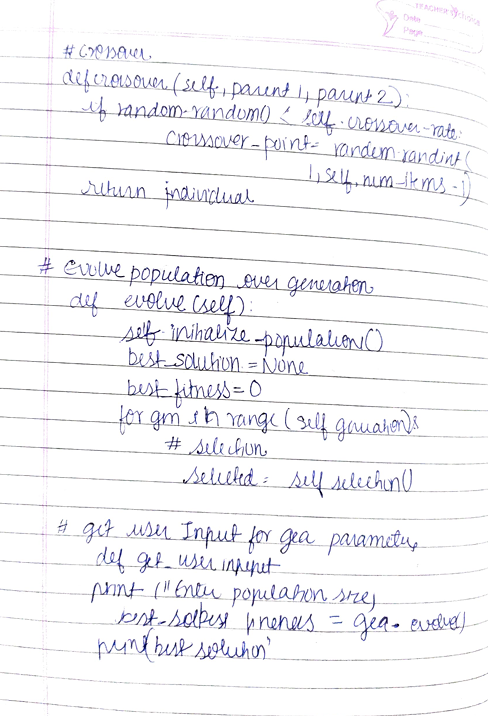 TEACHER'S
Date
Page
# Crossover.
def crossover (self, parent 1, parent 2):
if random.random() < self.crossover-rate:
crossover-point= random.randint(
1, self, num-items-1)
return individual
# evolve population over generation
def evolve (self):
self.initialize-population()
best-solution = None
best fitness=0
for gm in range (self genuation):
# selection
selected = self selection()
# get user Input for gea parameter,
def get-user input
print ("Enter population size,
best-solbest = gea. evolve()
print(best solution'